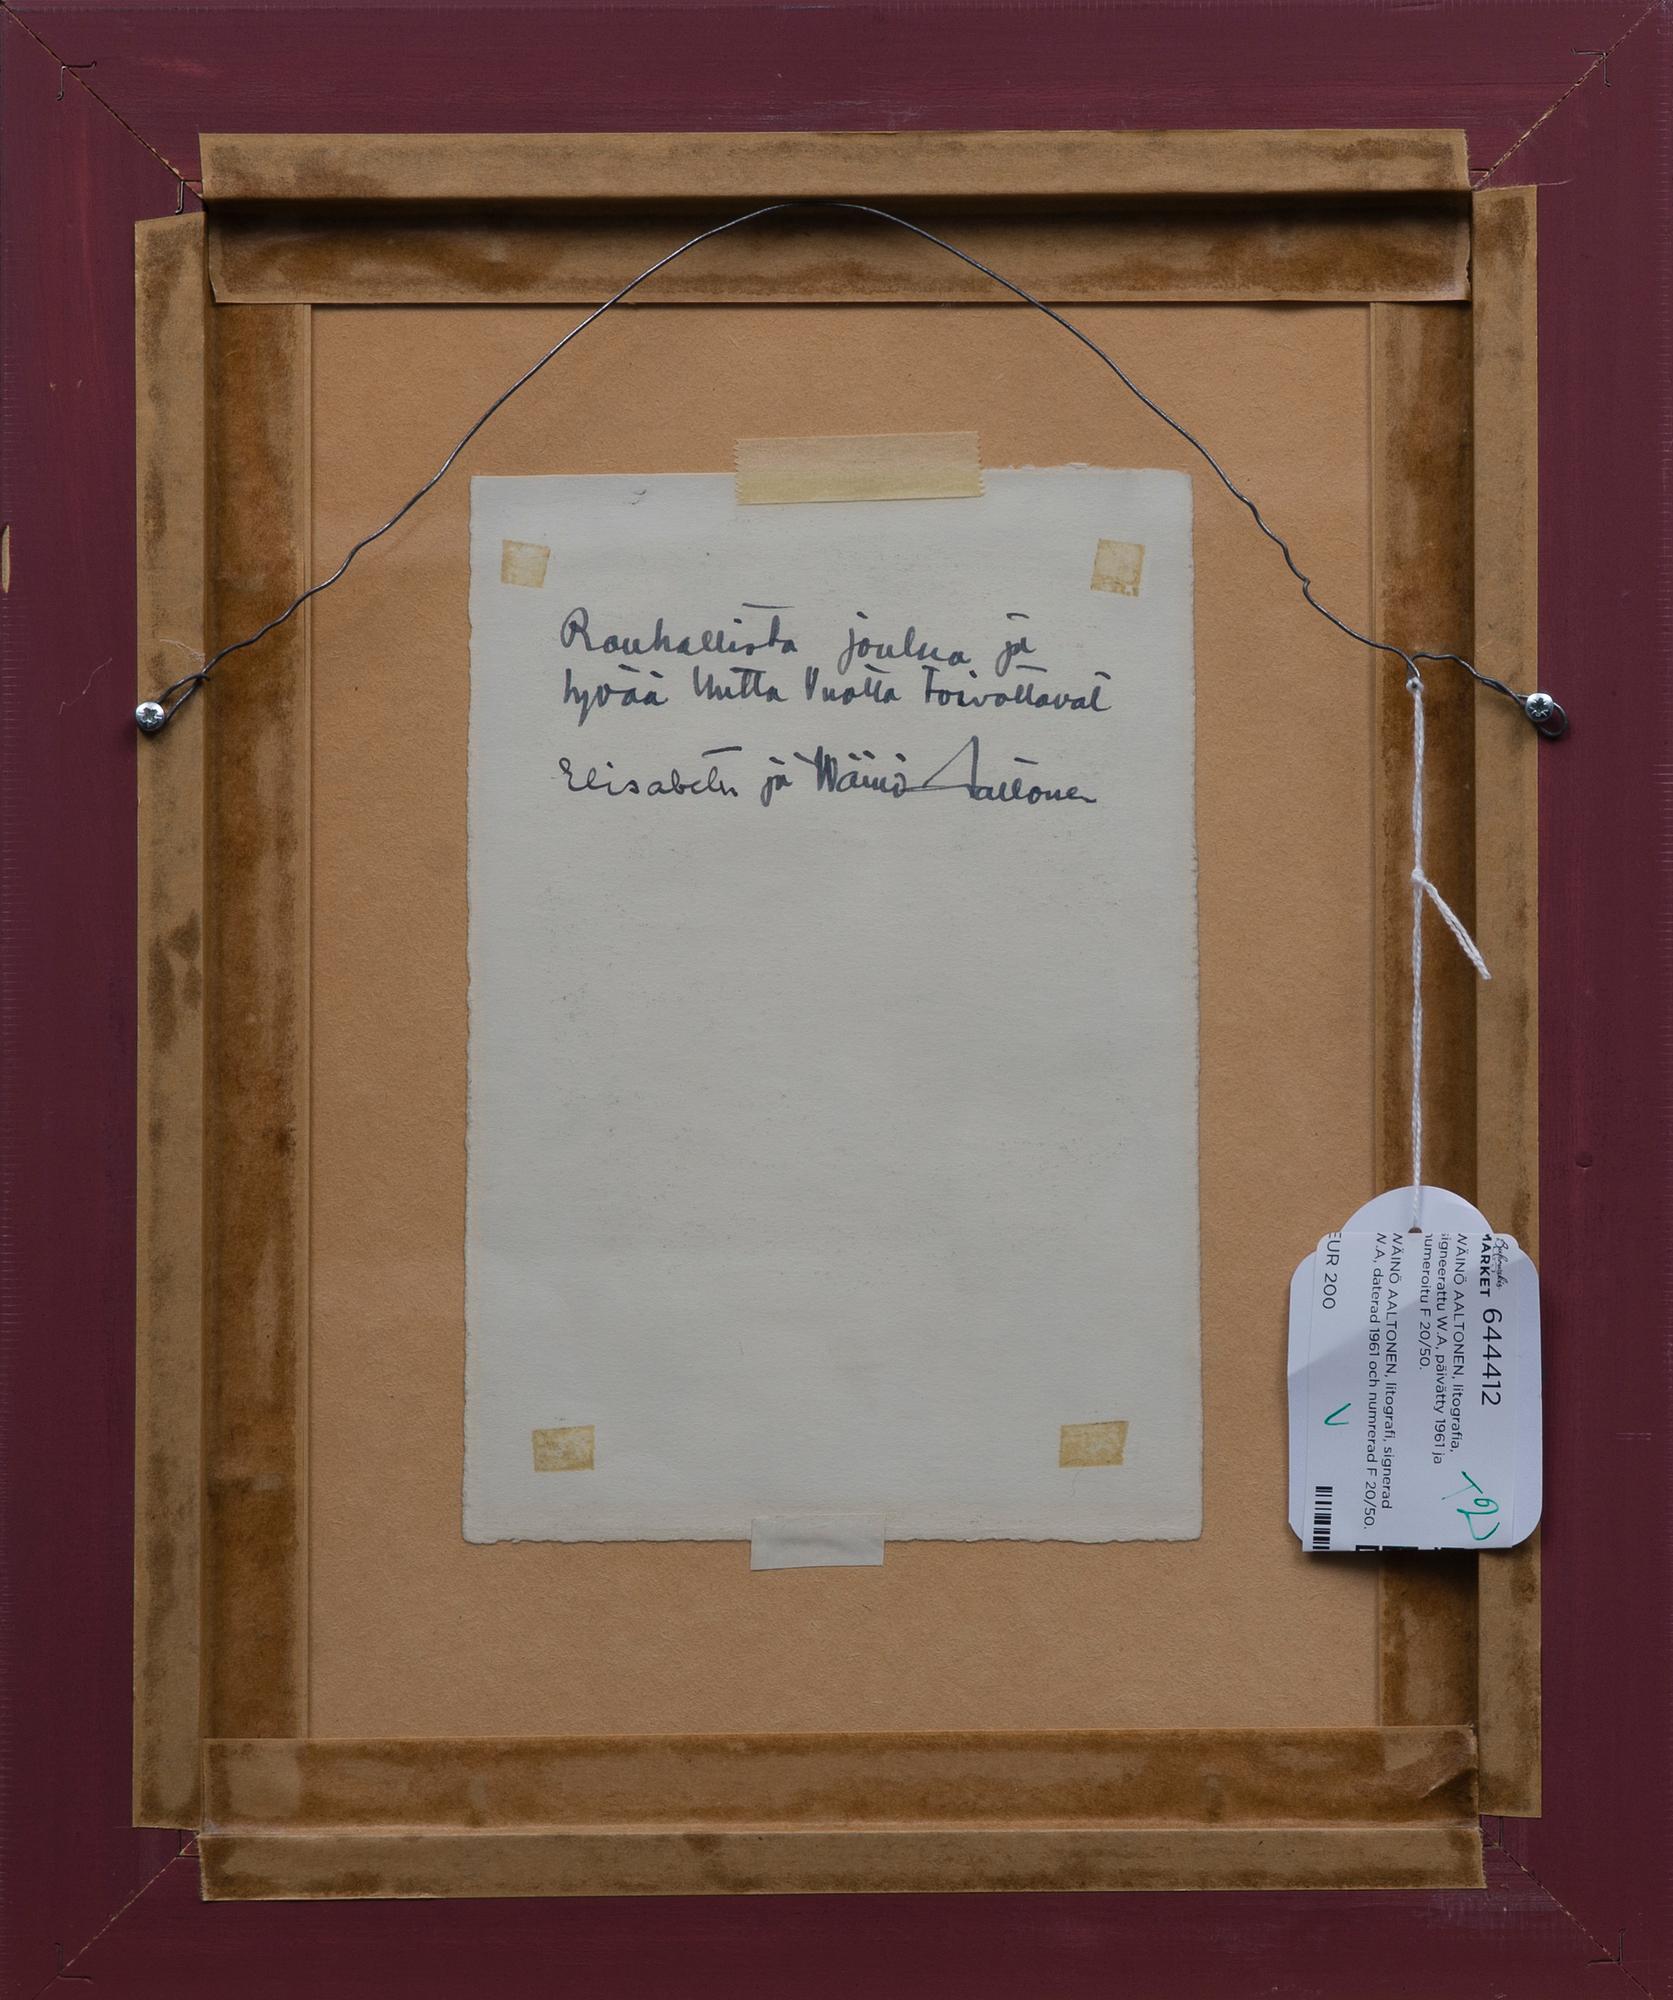 Rauhallista joulua ja
hyvää Uutta Vuotta Toivottavat
Elisabeth ja Wäinö Aaltonen
MARKET 644412
WÄINÖ AALTONEN, litografia,
signeerattu W.A, päivätty 1961 ja
numeroitu F 20/50.
WÄINÖ AALTONEN, litografi, signerad
W.A, daterad 1961 och numrerad F 20/50.
EUR 200
V